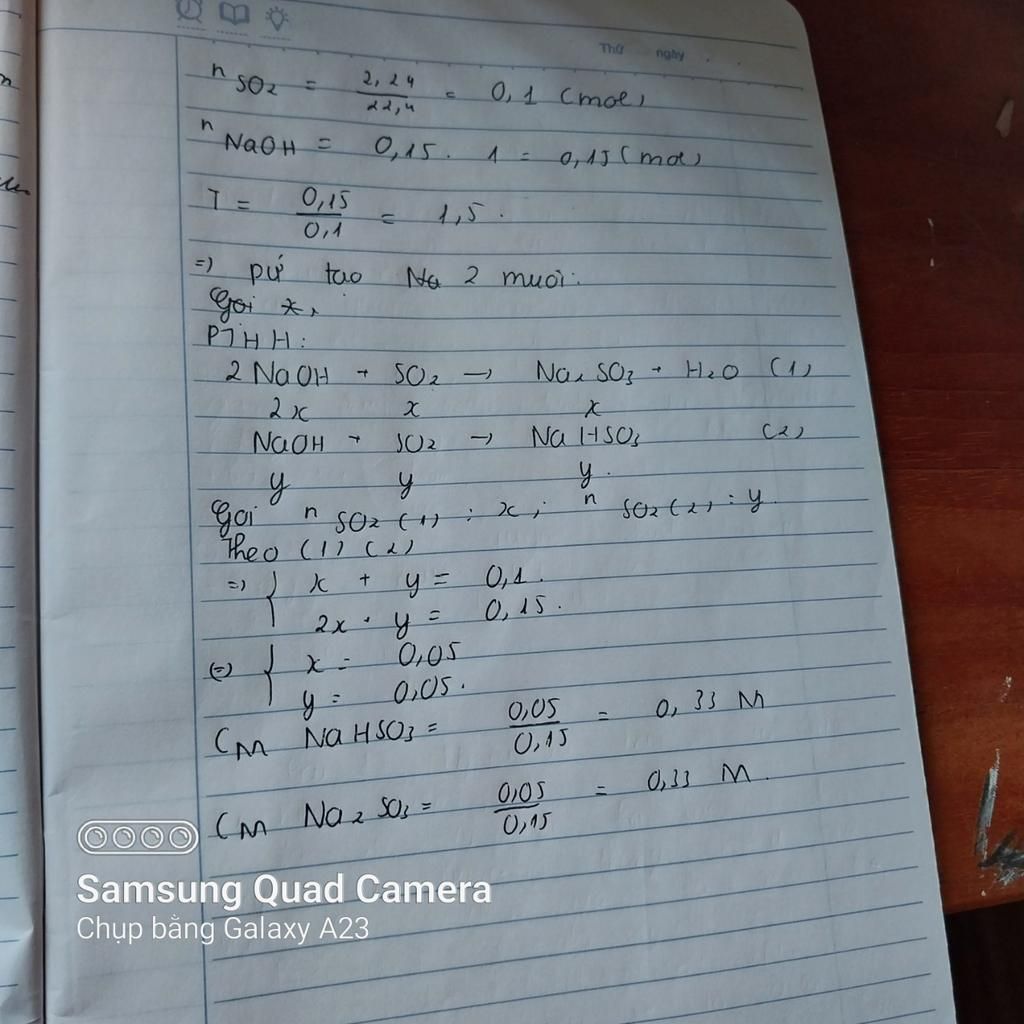 Thứ ngày
n SO2 = 2,24/22,4 = 0,1 (mol)
n NaOH = 0,15 . 1 = 0,15 (mol)
T = 0,15/0,1 = 1,5.
=> pứ tạo Na 2 muối:
Gọi x,
PTHH:
2 NaOH + SO2 → Na2SO3 + H2O (1)
2x x x
NaOH + SO2 → NaHSO3 (2)
y y y.
Gọi n SO2 (1) : x ; n SO2 (2) : y
Theo (1) (2)
=> { x + y = 0,1.
2x + y = 0,15.
(=) { x = 0,05
y = 0,05.
CM NaHSO3 = 0,05/0,15 = 0,33 M
CM Na2SO3 = 0,05/0,15 = 0,33 M.
Samsung Quad Camera
Chụp bằng Galaxy A23